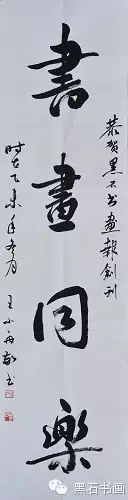 恭賀黑石書畫報創刊
書畫同樂
時在乙未年冬月
王小舟敬書
黑石书画